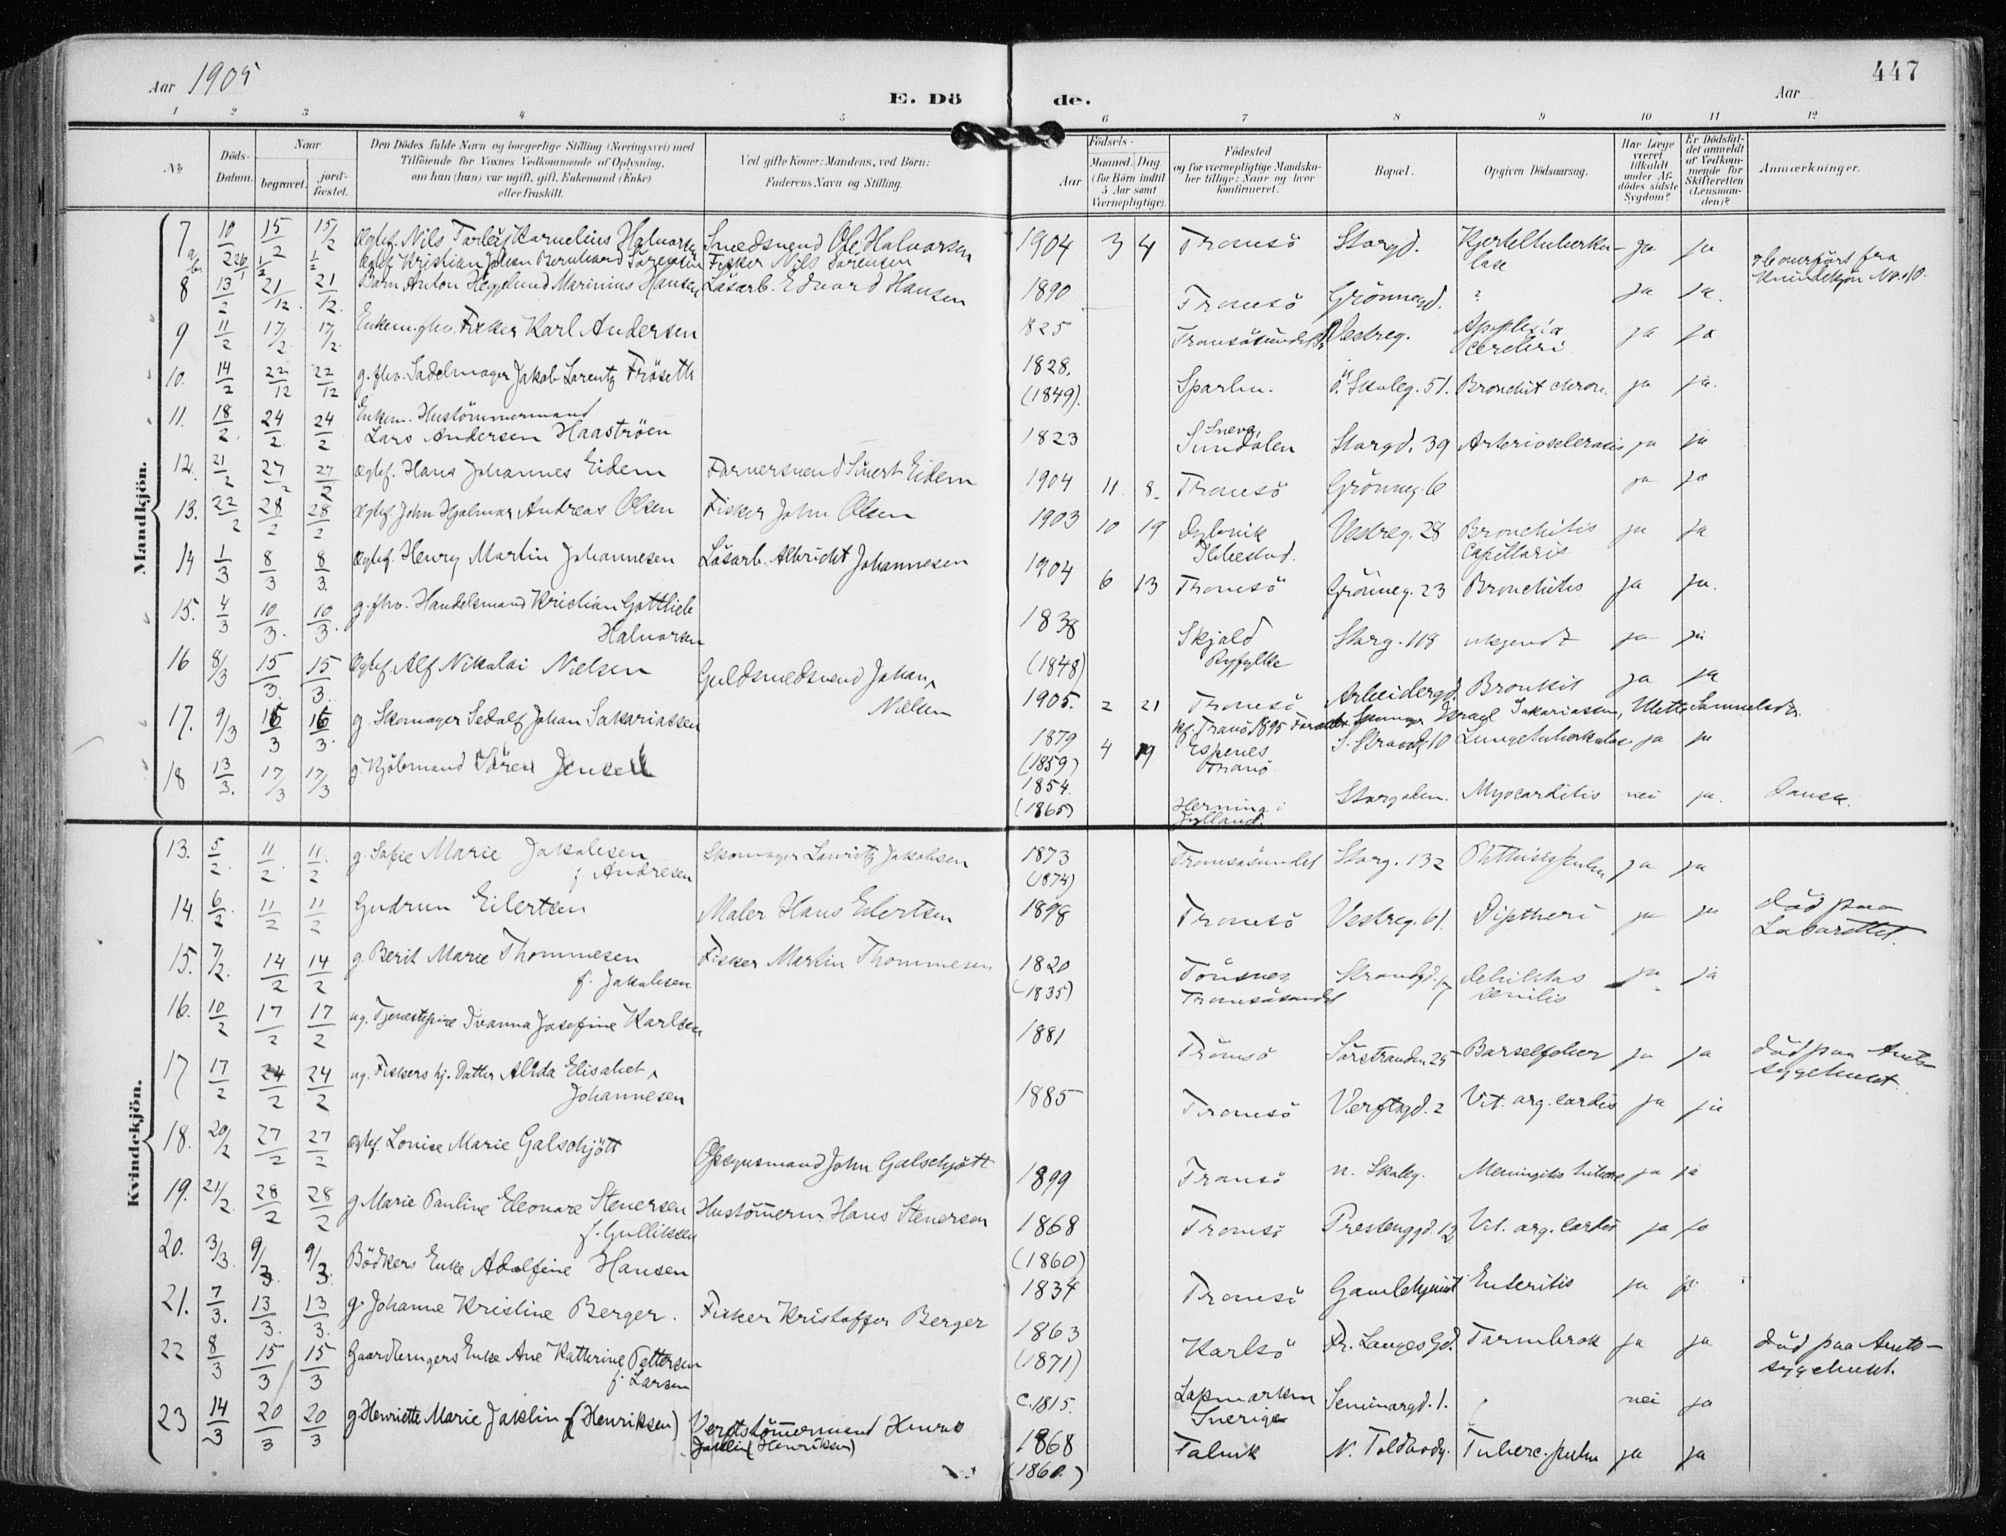 Aar 1905
E. Döde.
Aar
447
1 2 3 4 5 6 7 8 9 10 11 12
No
Döds-Datum.
Naar
begravet.
jord-fæstet.
Den Dödes fulde Navn og borgerlige Stilling (Næringsvei) med
Tilföiende for Voxnes Vedkommende af Oplysning,
om han (hun) var ugift, gift, Enkemand (Enke)
eller fraskilt.
Ved gifte Koner: Mandens, ved Börn:
Faderens Navn og Stilling.
Födsels-
Aar
Maaned. Dag
(for Börn indtil
5 Aar samt
Værnepligtige).
Födested
og for værnepligtige Mandska-
ber tillige: Naar og hvor
konfirmeret.
Bopæl.
Opgiven Dödsaarsag.
Har Læge
været
tilkaldt
under Af-
dödes sidste
Sygdom?
Er Dödsfal-
det anmeldt
af Vedkom-
mende for
Skifteretten
(Lensman-
den)?
Anmærkninger.
Mandkjön.
7 10/2 15/2 15/2 Ægtef. Nils Kornelius Halvorsen Smedsvend Ole Halvorsen 1904 3 4 Tromsö Storgd. Kjerteltuberkulose ja ja
26/1 1/2 1/2 Ægtef. Kristian Johan Bernhard Sörensen Fisker Nils Sörensen overfört fra Kvindekjön No 10.
8 13/2 21/12. 21/12. Barn Anton Hegelund Marinius Hansen Lösarb. Edvard Hansen 1890 Tromsö Grönnegd. ? ja ja.
9 11/2 17/2. 17/2. Enkem. fhv. Fisker Karl Andersen 1825 Tromsösundet Vestreg. Apoplexia cerebri ja ja
10. 14/2 22/12 22/12 g. fhv. Sadelmager Jakob Lorentz Fröseth 1828. (1849). Sparbu. ö. Skoleg. 51. Bronchit chron. ja ja.
11. 18/2. 24/2. 24/2 Enkem. Hustömmermand
Lars Andersen Haaströen 1823 Sundalen Storgd. 39 Arteriosclerosis ja ja
12. 21/2 27/2 27/2 Ægtef. Hans Johannes Eidem Farversvend Sivert Eidem 1904 11. 8. Tromsö Grönneg. 6 ja ja
13. 22/2 28/2 28/2 Ægtef. John Hjalmar Andreas Olsen Fisker John Olsen 1903 10 19 Dybvik Ibbestad. Vestreg. 28 Bronchitis capillaris ja ja
14 1/3 8/3 8/3. Ægtef. Henry Martin Johannesen Lösarb. Albricht Johannesen 1904 6 13 Tromsö Grönneg. 23 Bronchitis ja ja.
15. 4/3 10/3. 10/3. g. fhv. Handelsmand Kristian Gottlieb
Halvorsen 1838 (1848) Skjold Ryfylke Storg. 118 ukjendt ja ja
16 8/3 15/3. 15/3. Ægtef. Alf Nikolai Nielsen Guldsmedsvend Johan Nielsen 1905. 2 21 Tromsö Arbeidergd. Bronkit ja ja
17. 9/3 16/3 16/3. g. Skomager Sedolf Johan Sakariassen 1879 (1859) 4 19 kf. Tranö 1895 Israel Sakariassen, Mette Samuelsdtr. Espenes Tranö S. Strandg. 10 Lungetuberkulose ja ja
18 13/3. 17/3 17/3 g. Kjöbmand Sören Jensen 1854. (1865) Herning i Jylland. Storgaten. Myocarditis nei ja. Dansk.
Kvindekjön.
13. 5/2. 11/2. 11/2 g. Sofie Marie Jakobsen
f. Andresen Skomager Lauritz Jakobsen 1873 (1874) Tromsösundet Storg. 132 Phthisis pulm ja ja
14. 6/2. 11/2 11/2 Gudrun Eilertsen Maler Hans Eilertsen 1898 Tromsö Vestreg. 61. Diptheri ja ja död paa Lazarettet.
15. 7/2. 14/2 14/2 g. Berit Marie Thommesen
f. Jakobsen Fisker Martin Thommesen 1820 (1835) Tönsnes Tromsösundet Strandgd. 17 debilitas senilis ja ja
16. 10/2 17/2 17/2 ug. Tjenestepige Ivanna Josefine Karlsen 1881 Tromsö Sörstranden 25 Barselfeber ja ja död paa Amts-sygehuset
17 17/2 24/2 24/2 ug. Fiskers hj. Datter Alida Elisabet
Johannesen 1885 Tromsö Verftsgd. 2 Vit. org. cordis ja ja
18. 20/2 27/2 27/2 Ægtef. Louise Marie Galschjött Opsynsmand John Galschjött 1899 Tromsö n. Skoleg. Meningitis tuberc ja ja
19. 21/2. 28/2 28/2 g. Marie Pauline Eleonore Stenersen
f. Gulliksen Hustömerm. Hans Stenersen 1868 (1860) Tromsö Prestenggd. 12 Vit. org. cordis ja ja
20. 3/3. 9/3. 9/3. Bödkers Enke Adolfine Hansen 1834 Tromsö Gamlehjemmet Enteritis ja ja
21. 7/3. 13/3. 13/3. g. Johanne Kristine Berger. Fisker Kristoffer Berger 1863 (1871) Karlsö Fr. Langes Gd. Tarmbrok ja ja död paa Amts-sygehuset.
22 8/3 15/3 15/3 Gaardbrugers Enke Ane Kathrine Pettersen
f. Larsen C. 1815. Lapmarken Sverige Seminargd. 1. ? nei ja
23 14/3 20/3 20/3 g. Henriette Marie Jaklin (Henriksen) Verftstömmermand Henrik
Jaklin (Henriksen) 1868 (1860.) Talvik N. Toldbodg. Tuberc. pulm ja ja